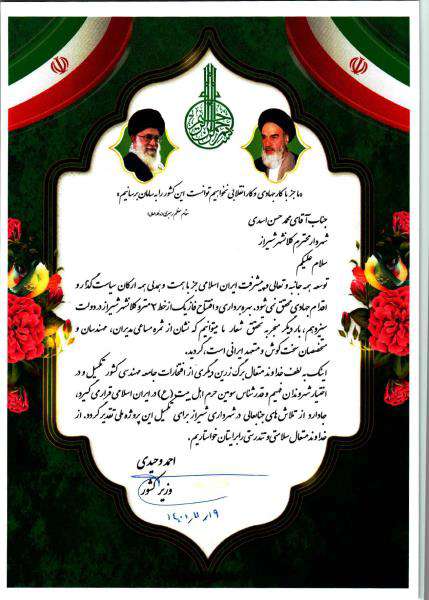 «ما جز با کار جهادی و کار انقلابی نخواهیم توانست این کشور را به سامان برسانیم»
جناب آقای محمد حسن اسدی
شهردار محترم کلانشهر شیراز
سلام علیکم
توسعه همه جانبه و تعالی و پیشرفت ایران اسلامی جز با همت و همدلی همه ارکان سیاست گذار و
اقدام جهادی محقق نمی شود. بهره برداری و افتتاح فاز یک از خط ۲ مترو کلانشهر شیراز در دولت
سیزدهم، بار دیگر منجر به تحقق شعار ما میتوانیم که نشان از ثمره مساعی مدیران، مهندسان و
متخصصان سخت کوش و متعهد ایرانی است، گردید.
اینک به لطف خداوند متعال برگ زرین دیگری از افتخارات جامعه مهندسی کشور تکمیل و در
اختیار شهروندان فهیم و قدرشناس سومین حرم اهل بیت (ع) در ایران اسلامی قرار می گیرد،
جا دارد از تلاش های جنابعالی در شهرداری شیراز برای تکمیل این پروژه ملی تقدیر گردد. از
خداوند متعال سلامتی و تندرستی را برایتان خواستاریم.
احمد وحیدی
وزیر کشور